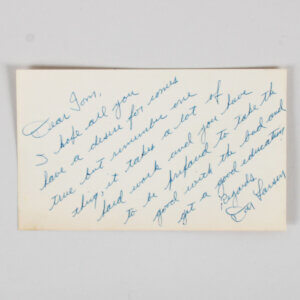 Dear Tom,
I hope all you
have a desire for comes
true but remember one
thing it takes a lot of
hard work and you have
to be prepared to take the
good with the bad and
get a good education
Regards
Don Larsen